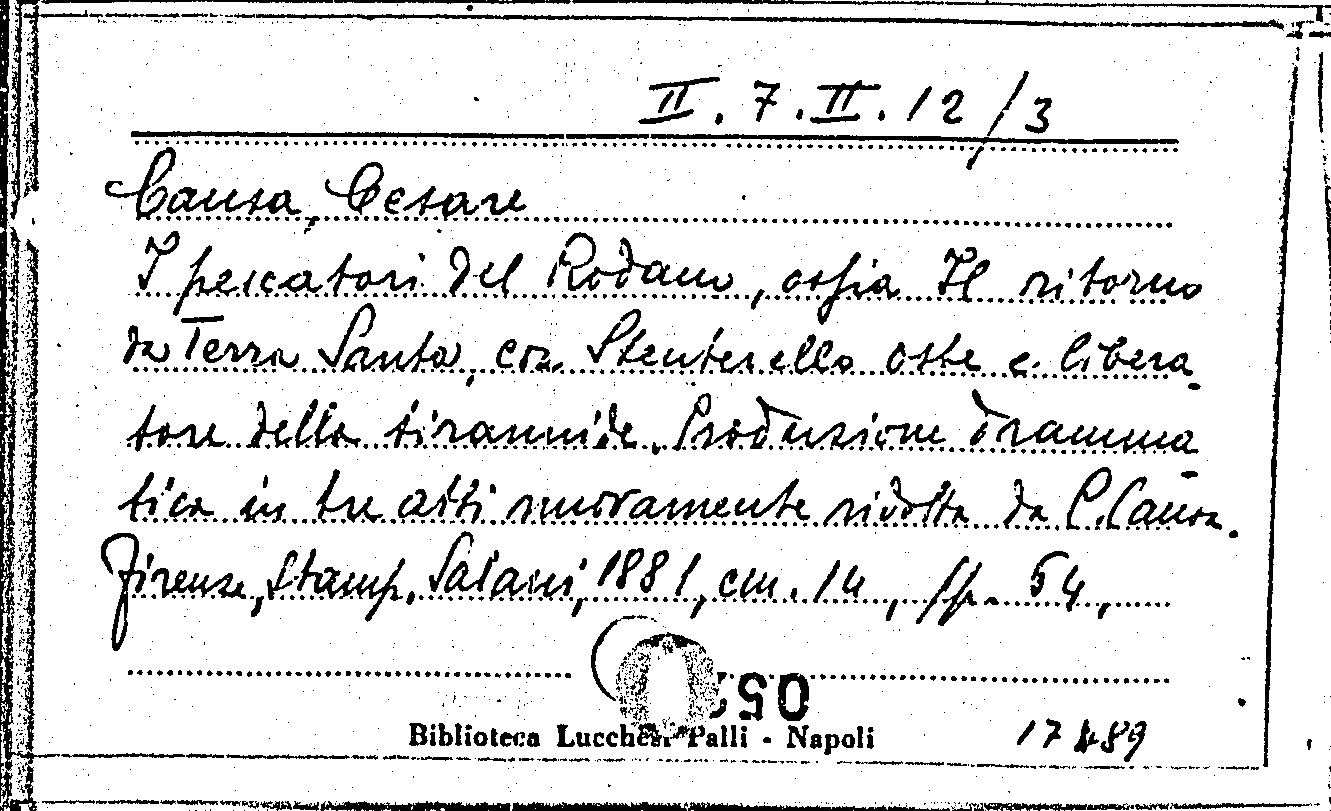 II. 7. II. 12/3
Causa, Cesare
I pescatori del Rodano, ossia Il ritorno
da Terra Santa, con Stenterello oste e libera-
tore della tirannide. Produzione dramma-
tica in tre atti nuovamente ridotta da C. Causa.
Firenze, Stamp. Salani, 1881, cm. 14, pp. 54,
Biblioteca Lucchesi Palli - Napoli
17489